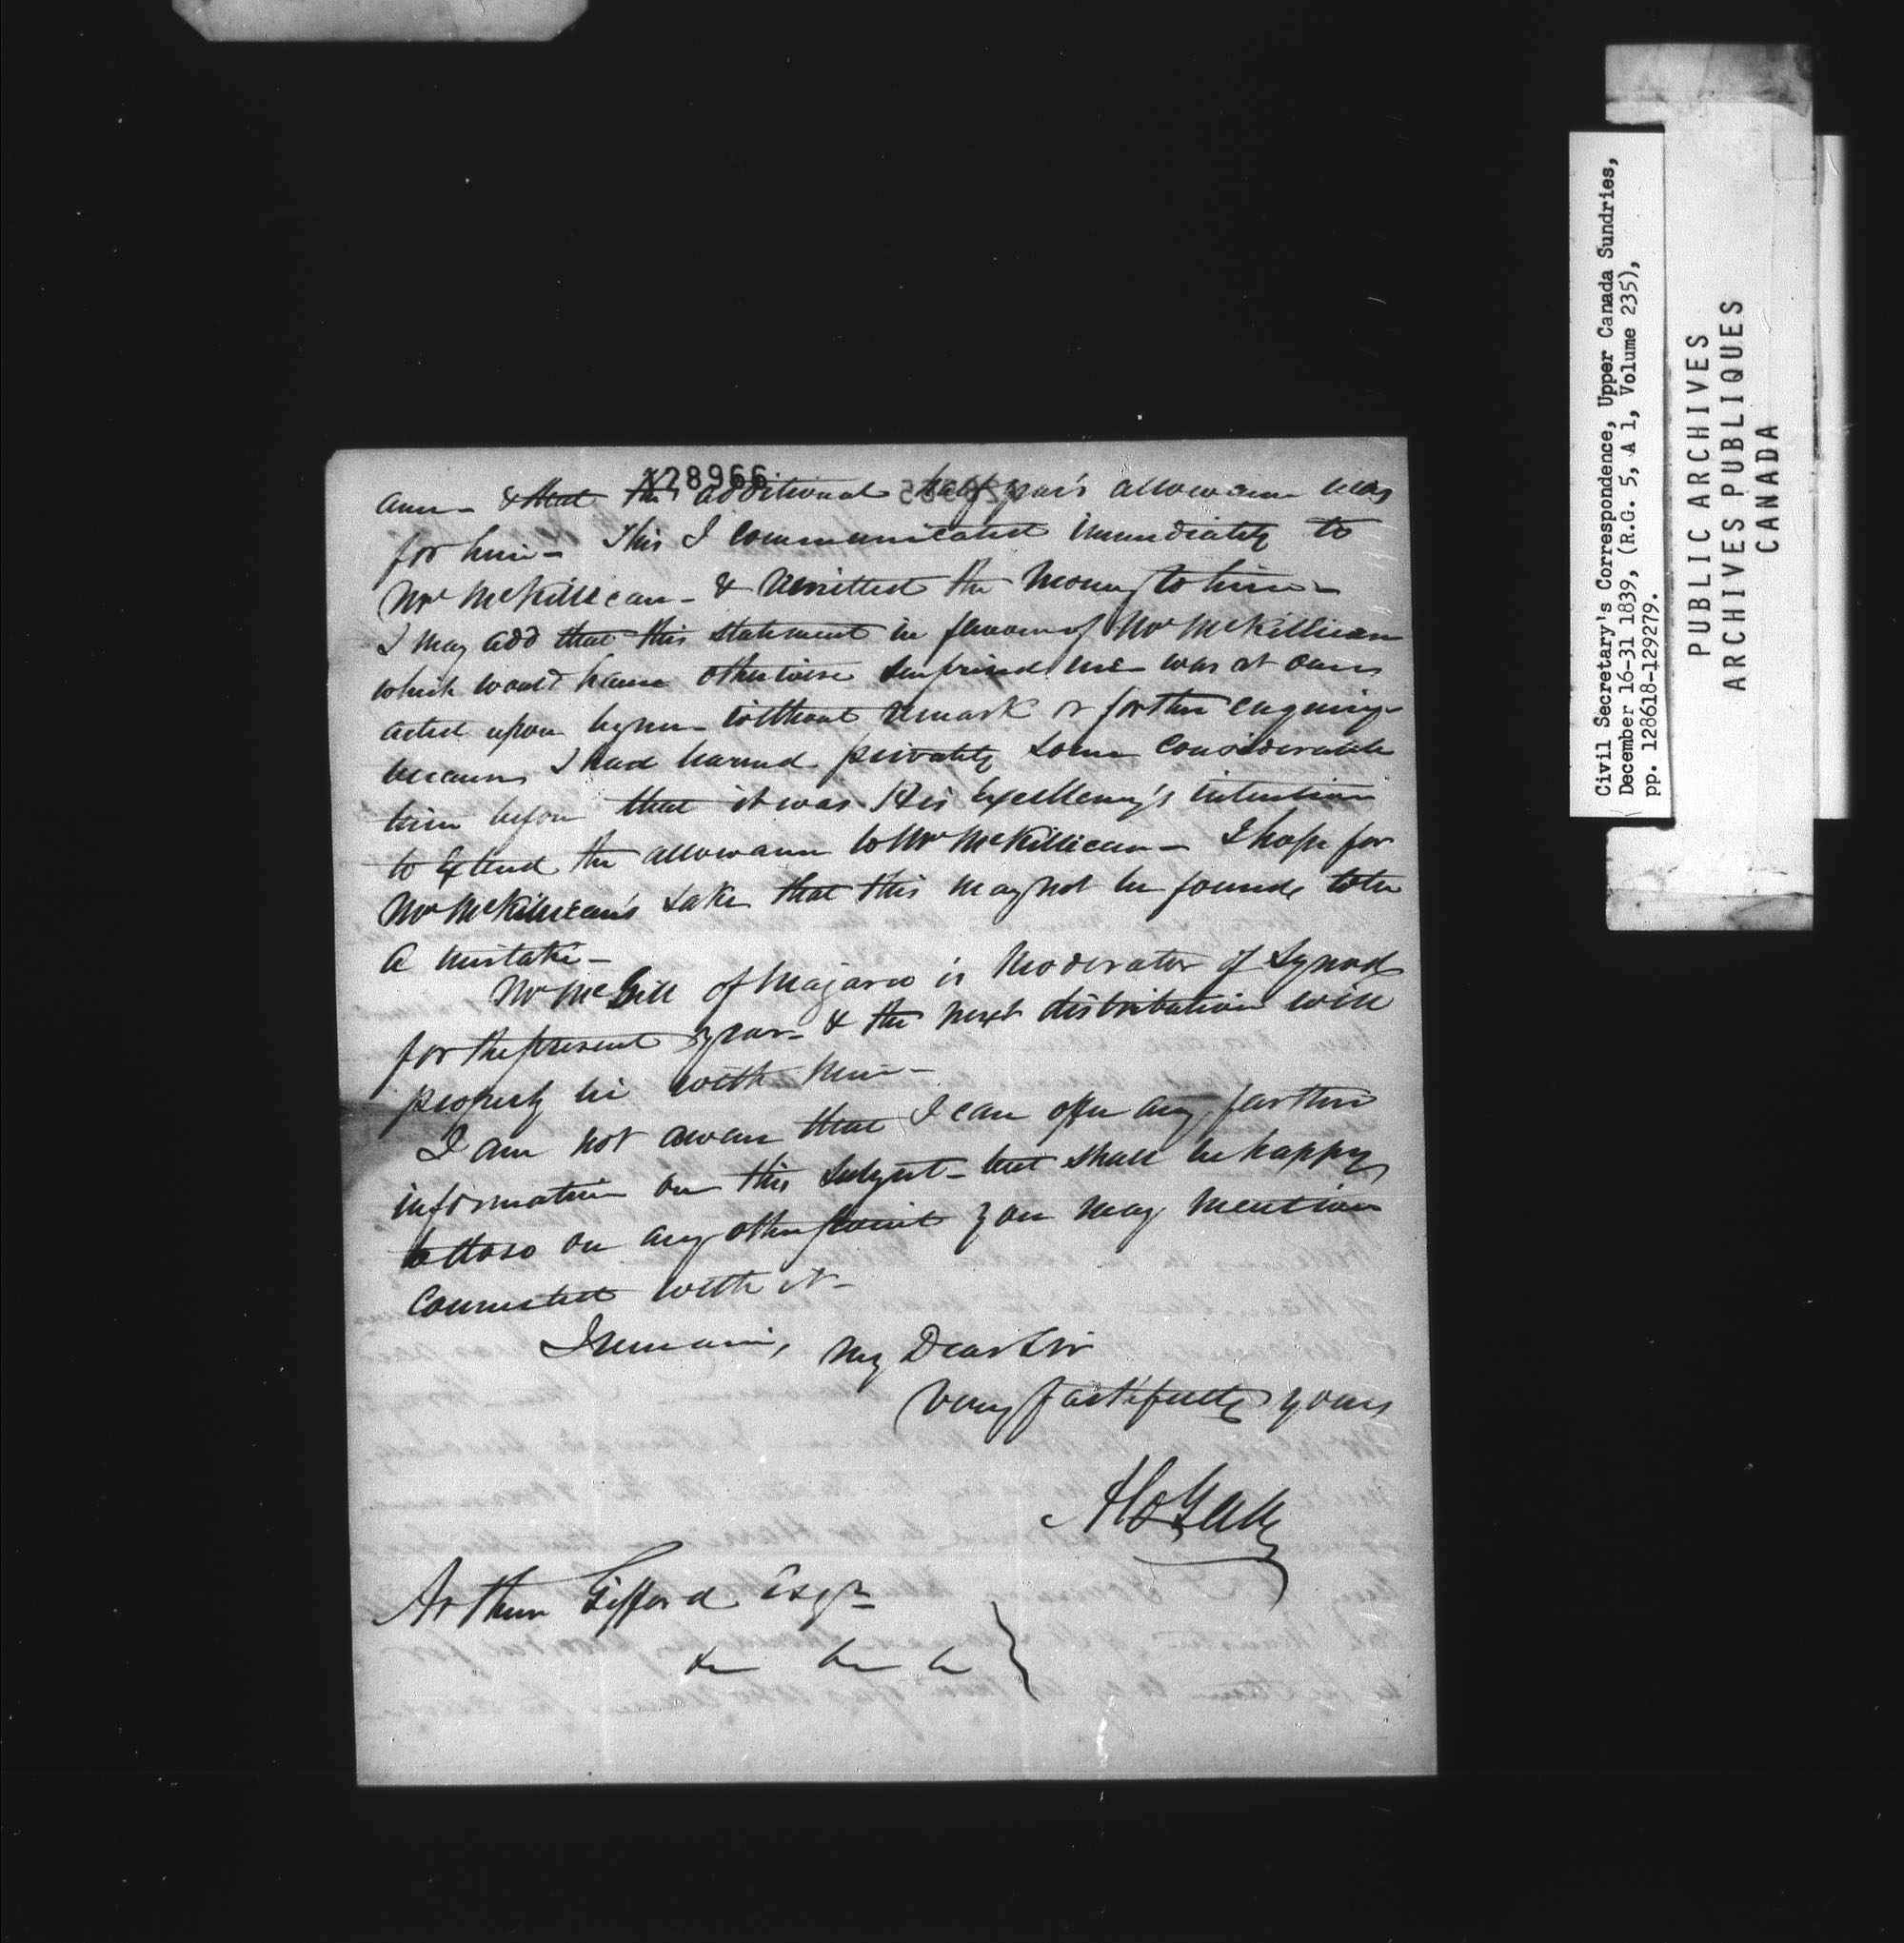 128966
ance - & that the additional half year's allowance was
for him - This I communicated immediately to
Mr McKillican - & remitted the money to him -
I may add that this statement in favour of Mr McKillican
which would have otherwise surprised me was at once
acted upon by me - without remark or further enquiry -
because I had learned privately some considerable
time before that it was His Excellency's intention
to extend the allowance to Mr McKillican - I hope for
Mr McKillican's sake that this may not be found to be
a mistake -
Mr McGill of Niagara is Moderator of Synod
for the present year - & the next distribution will
properly lie with him -
I am not aware that I can offer any further
information on this subject - but shall be happy
to do so on any other point you may mention
connected with it -
I remain, my Dear Sir
very faithfully yours
Arthur Gifford Esqr
Civil Secretary's Correspondence, Upper Canada Sundries,
December 16-31 1839, (R.G. 5, A 1, Volume 235),
pp. 128618-129279.
PUBLIC ARCHIVES
ARCHIVES PUBLIQUES
CANADA